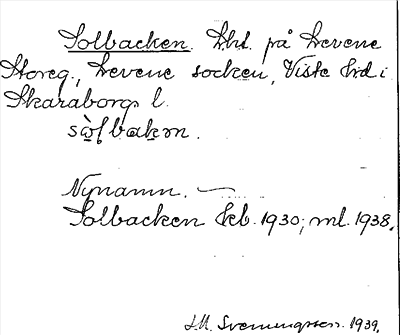 Solbacken. Lht. på Levene
Storeg., Levene socken, Viste hd i
Skaraborgs l.
sòlbakɷn.
Nynamn. —
Solbacken kb. 1930; ml. 1938.
J.M. Svenningsson. 1939.